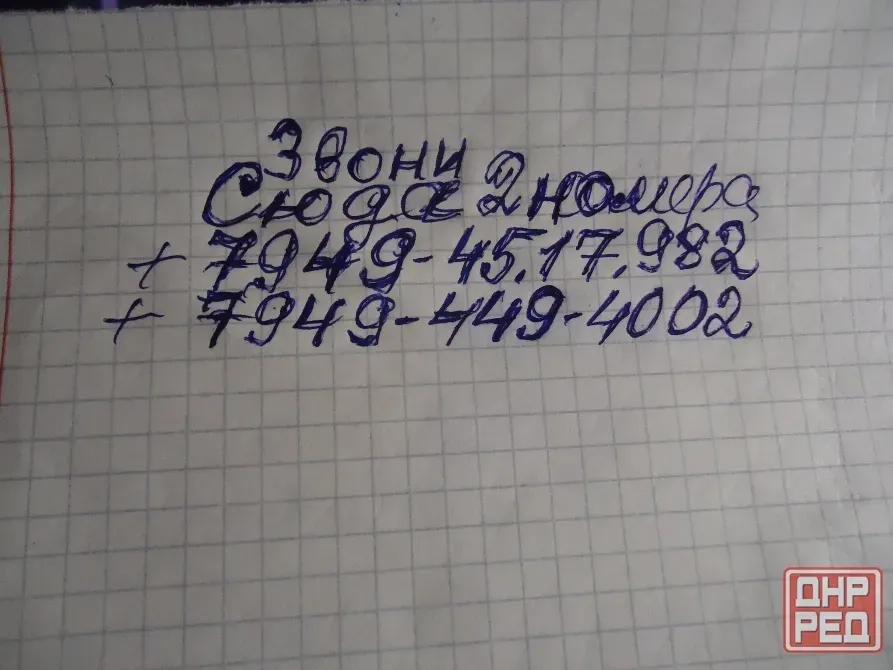 Звони
Сюда 2 номера
+ 7949-45.17.982
+ 7949-449-4002
ДНР
РЕД